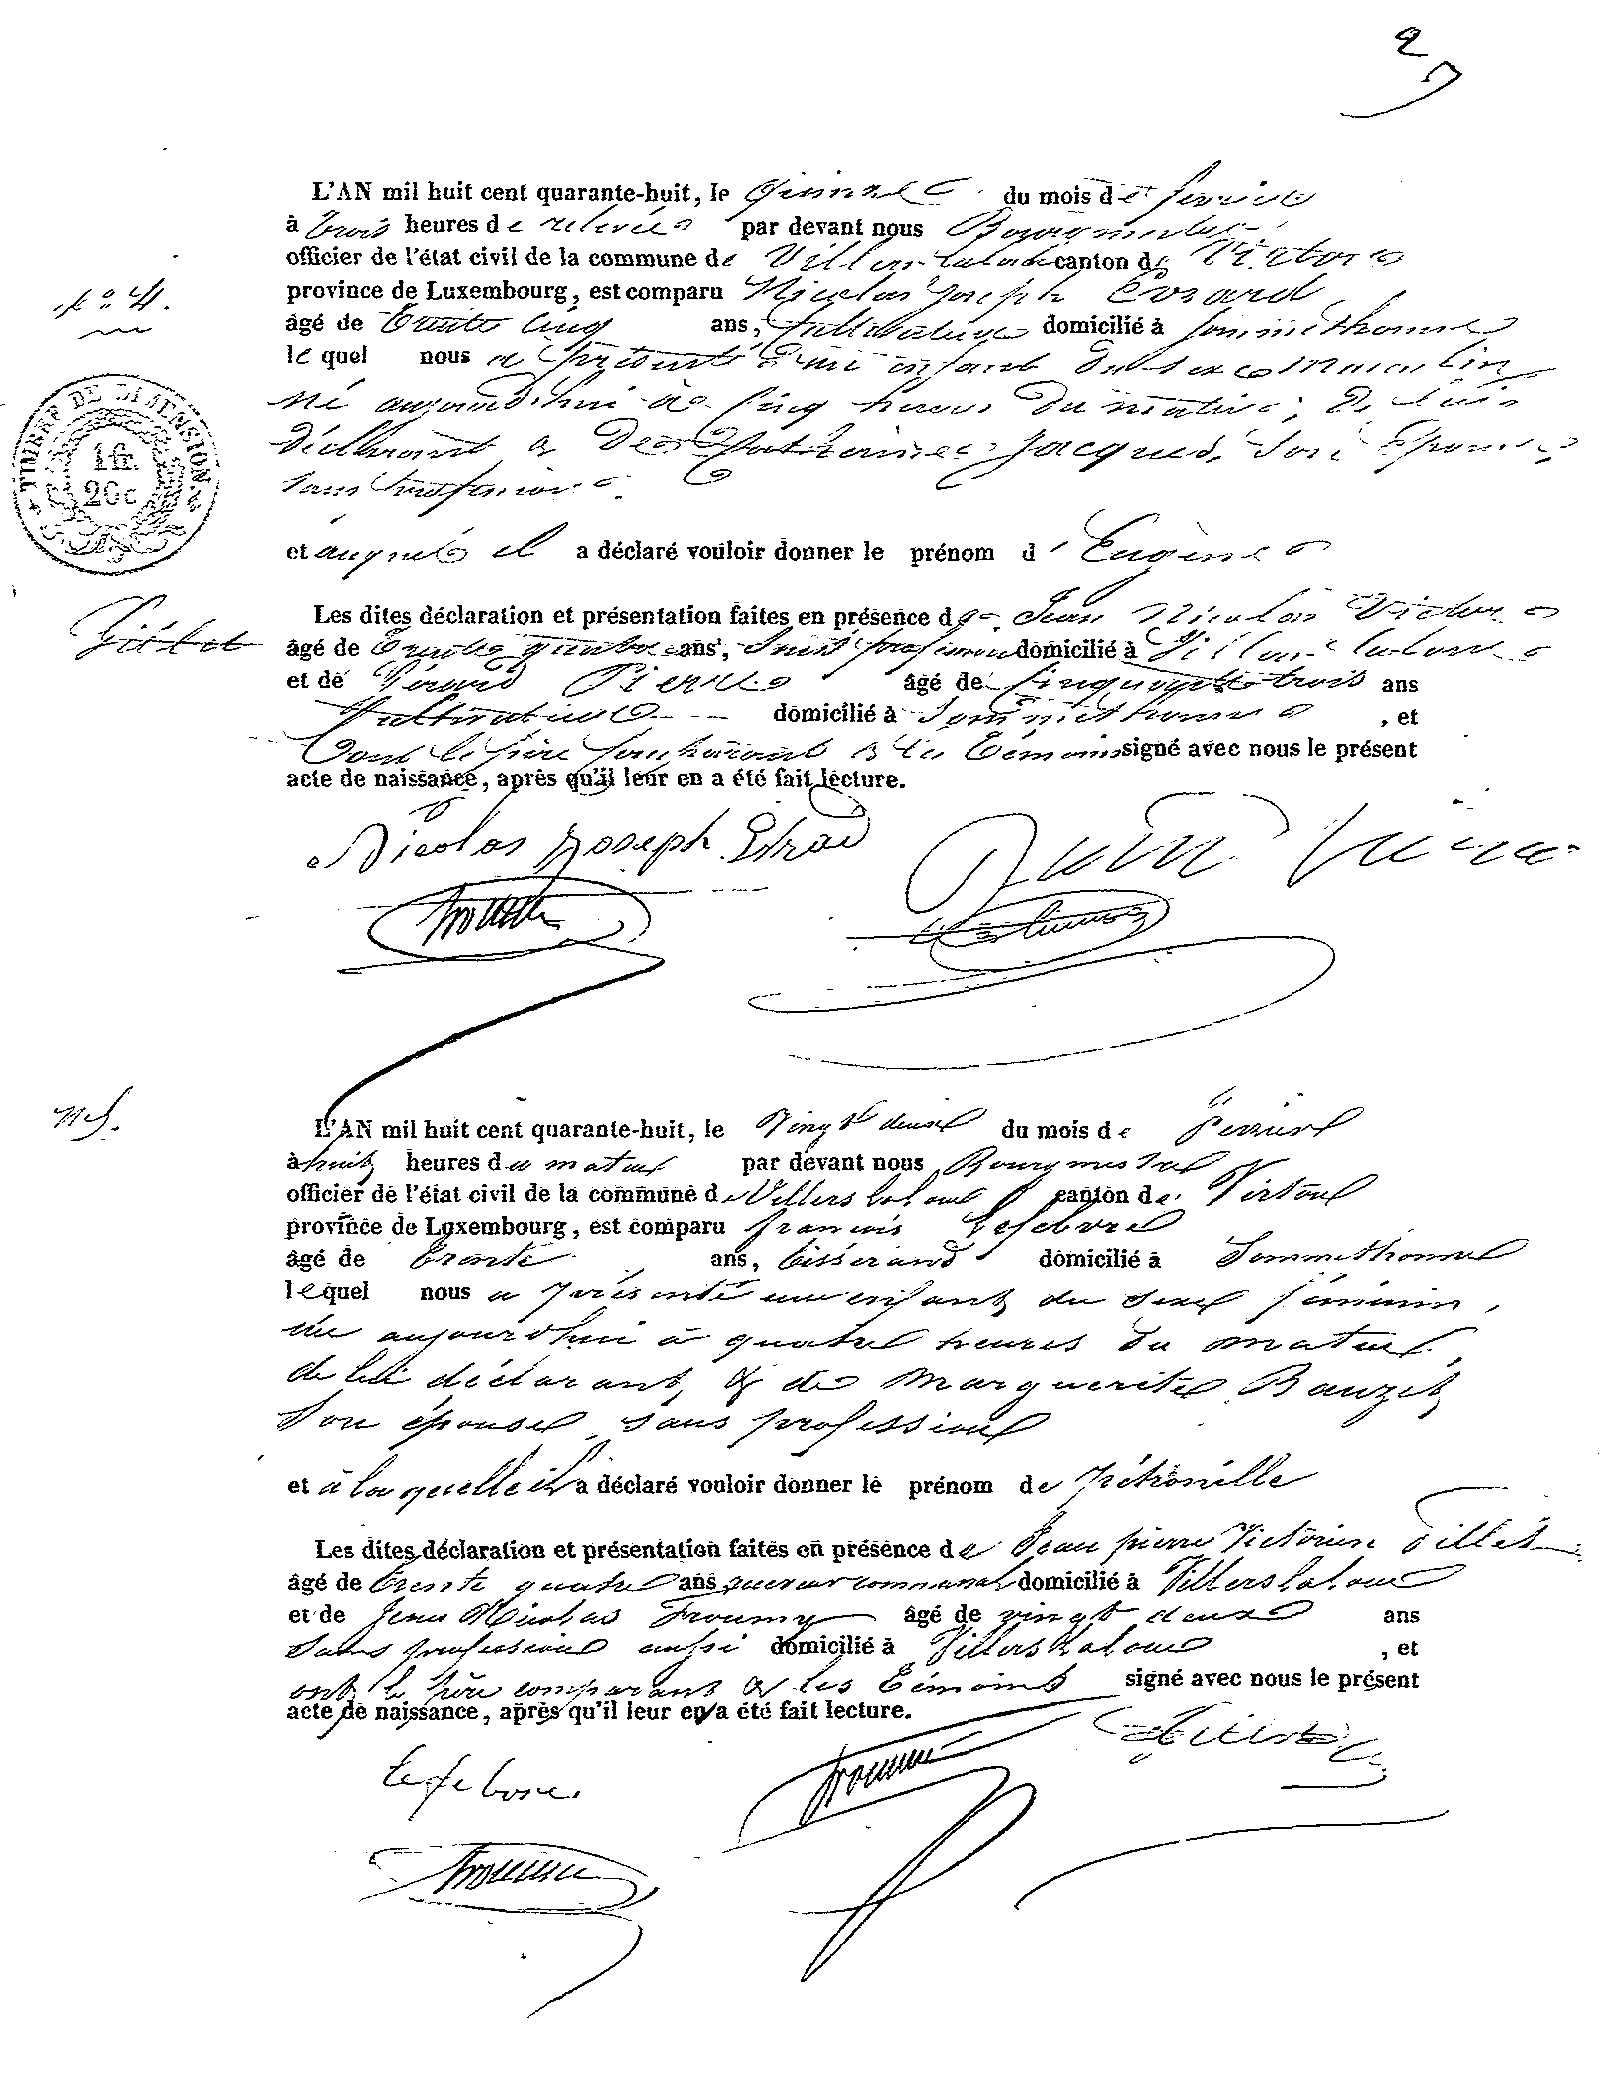 2
L'AN mil huit cent quarante-huit, le quinze du mois de fevrier
à trois heures de relevée par devant nous Bourgmestre
officier de l'état civil de la commune de Villers laloue canton de Virton
province de Luxembourg, est comparu Nicolas Joseph Evrard
N° 4.
âgé de trente cinq ans, Cultivateur domicilié à Sommethonne
le quel nous a présenté un enfant du sexe Masculin
TIMBRE DE DIMENSION.
1 fr.
20 c
né aujourd'hui à cinq heures du matin, de lui
déclarant & de Catherine Jacques, son épouse
sans profession
et auquel il a déclaré vouloir donner le prénom d'Eugène
Les dites déclaration et présentation faites en présence de Jean Nicolas Victor
Gillet âgé de trente quatre ans, sans profession domicilié à Villers laloue
et de Pierre âgé de cinquante trois ans
Cultivateur domicilié à Sommethonne, et
ont le père comparant & les témoins signé avec nous le présent
acte de naissance, après qu'il leur en a été fait lecture.
Nicolas Joseph Evrad
N 5.
L'AN mil huit cent quarante-huit, le Vingt deux du mois de Fevrier
à huit heures du matin par devant nous Bourgmestre
officier de l'état civil de la commune de Villers laloue canton de Virton
province de Luxembourg, est comparu françois Lefebvre
âgé de trente ans, tisserand domicilié à Sommethonne
lequel nous a présenté un enfant du sexe féminin,
née aujourd'hui à quatre heures du matin,
de lui déclarant, & de Marguerite Bauzet,
son épouse, sans profession
et à laquelle il a déclaré vouloir donner le prénom de Pétronille
Les dites déclaration et présentation faites en présence de Jean pierre Victorien Gillet
âgé de trente quatre ans receveur communal domicilié à Villers laloue
et de Jean Nicolas âgé de vingt deux ans
sans profession aussi domicilié à Villers laloue, et
ont le père comparant & les témoins signé avec nous le présent
acte de naissance, après qu'il leur en a été fait lecture.
Lefebvre.